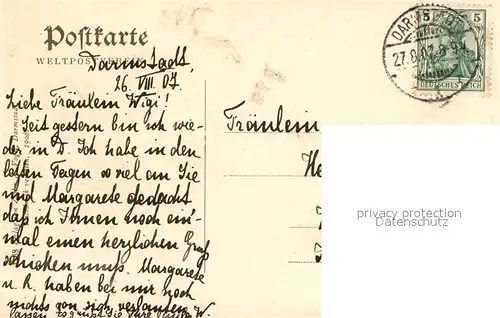 Postkarte
WELTPOSTVEREIN
Darmstadt,
26. VIII 07
Liebe Fräulein Wigi!
Seit gestern bin ich wie-
der in D. Ich habe in den
letzten Tagen so viel an Sie
und Margarete gedacht
daß ich Ihnen noch ein-
mal einen herzlichen Gruß
schicken muß. Margarete
u. R. haben bei mir noch
nichts von sich verlauten
lassen. Es grüßt Sie Ihre W.
Fräulein
He
DARMSTADT
27.8.07.8-9V
5 5
DEUTSCHES REICH
privacy protection
Datenschutz